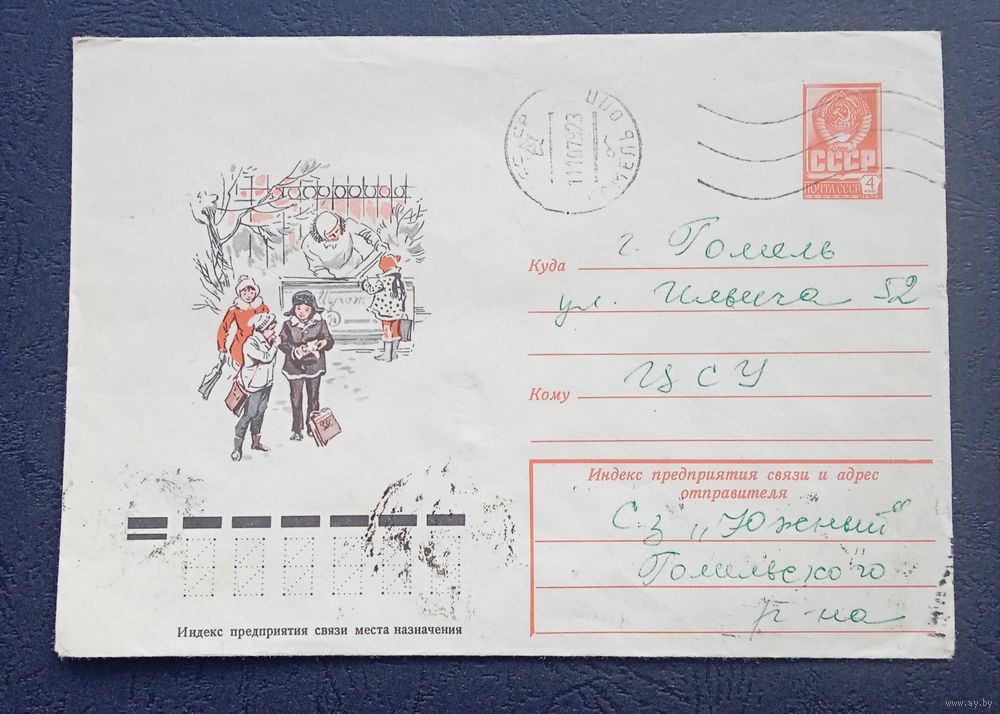 СССР
ПОЧТА СССР 4
КОП
11107923
Куда г. Гомель
ул. Ильича 52
Кому ЦСУ
Индекс предприятия связи и адрес
отправителя
С-з „Южный“
Гомельского
р-на
Индекс предприятия связи места назначения
www.ay.by